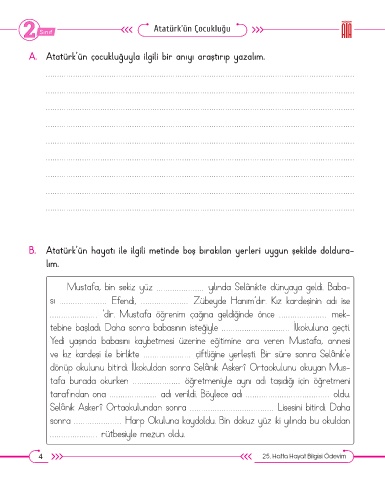 2. Sınıf
Atatürk'ün Çocukluğu
ATA
A. Atatürk'ün çocukluğuyla ilgili bir anıyı araştırıp yazalım.
B. Atatürk'ün hayatı ile ilgili metinde boş bırakılan yerleri uygun şekilde doldura-
lım.
Mustafa, bin sekiz yüz .................... yılında Selânikte dünyaya geldi. Baba-
sı .................... Efendi, .................... Zübeyde Hanım'dır. Kız kardeşinin adı ise
.................... 'dir. Mustafa öğrenim çağına geldiğinde önce .................... mek-
tebine başladı. Daha sonra babasının isteğiyle ............................ İlkokuluna geçti.
Yedi yaşında babasını kaybetmesi üzerine eğitimine ara veren Mustafa, annesi
ve kız kardeşi ile birlikte .................... çiftliğine yerleşti. Bir süre sonra Selânik'e
dönüp okulunu bitirdi. İlkokuldan sonra Selânik Askerî Ortaokulunu okuyan Mus-
tafa burada okurken .................... öğretmeniyle aynı adı taşıdığı için öğretmeni
tarafından ona .................... adı verildi. Böylece adı .................................... oldu.
Selânik Askerî Ortaokulundan sonra .................................... Lisesini bitirdi. Daha
sonra .................... Harp Okuluna kaydoldu. Bin dokuz yüz iki yılında bu okuldan
.................... rütbesiyle mezun oldu.
4
25. Hafta Hayat Bilgisi Ödevim